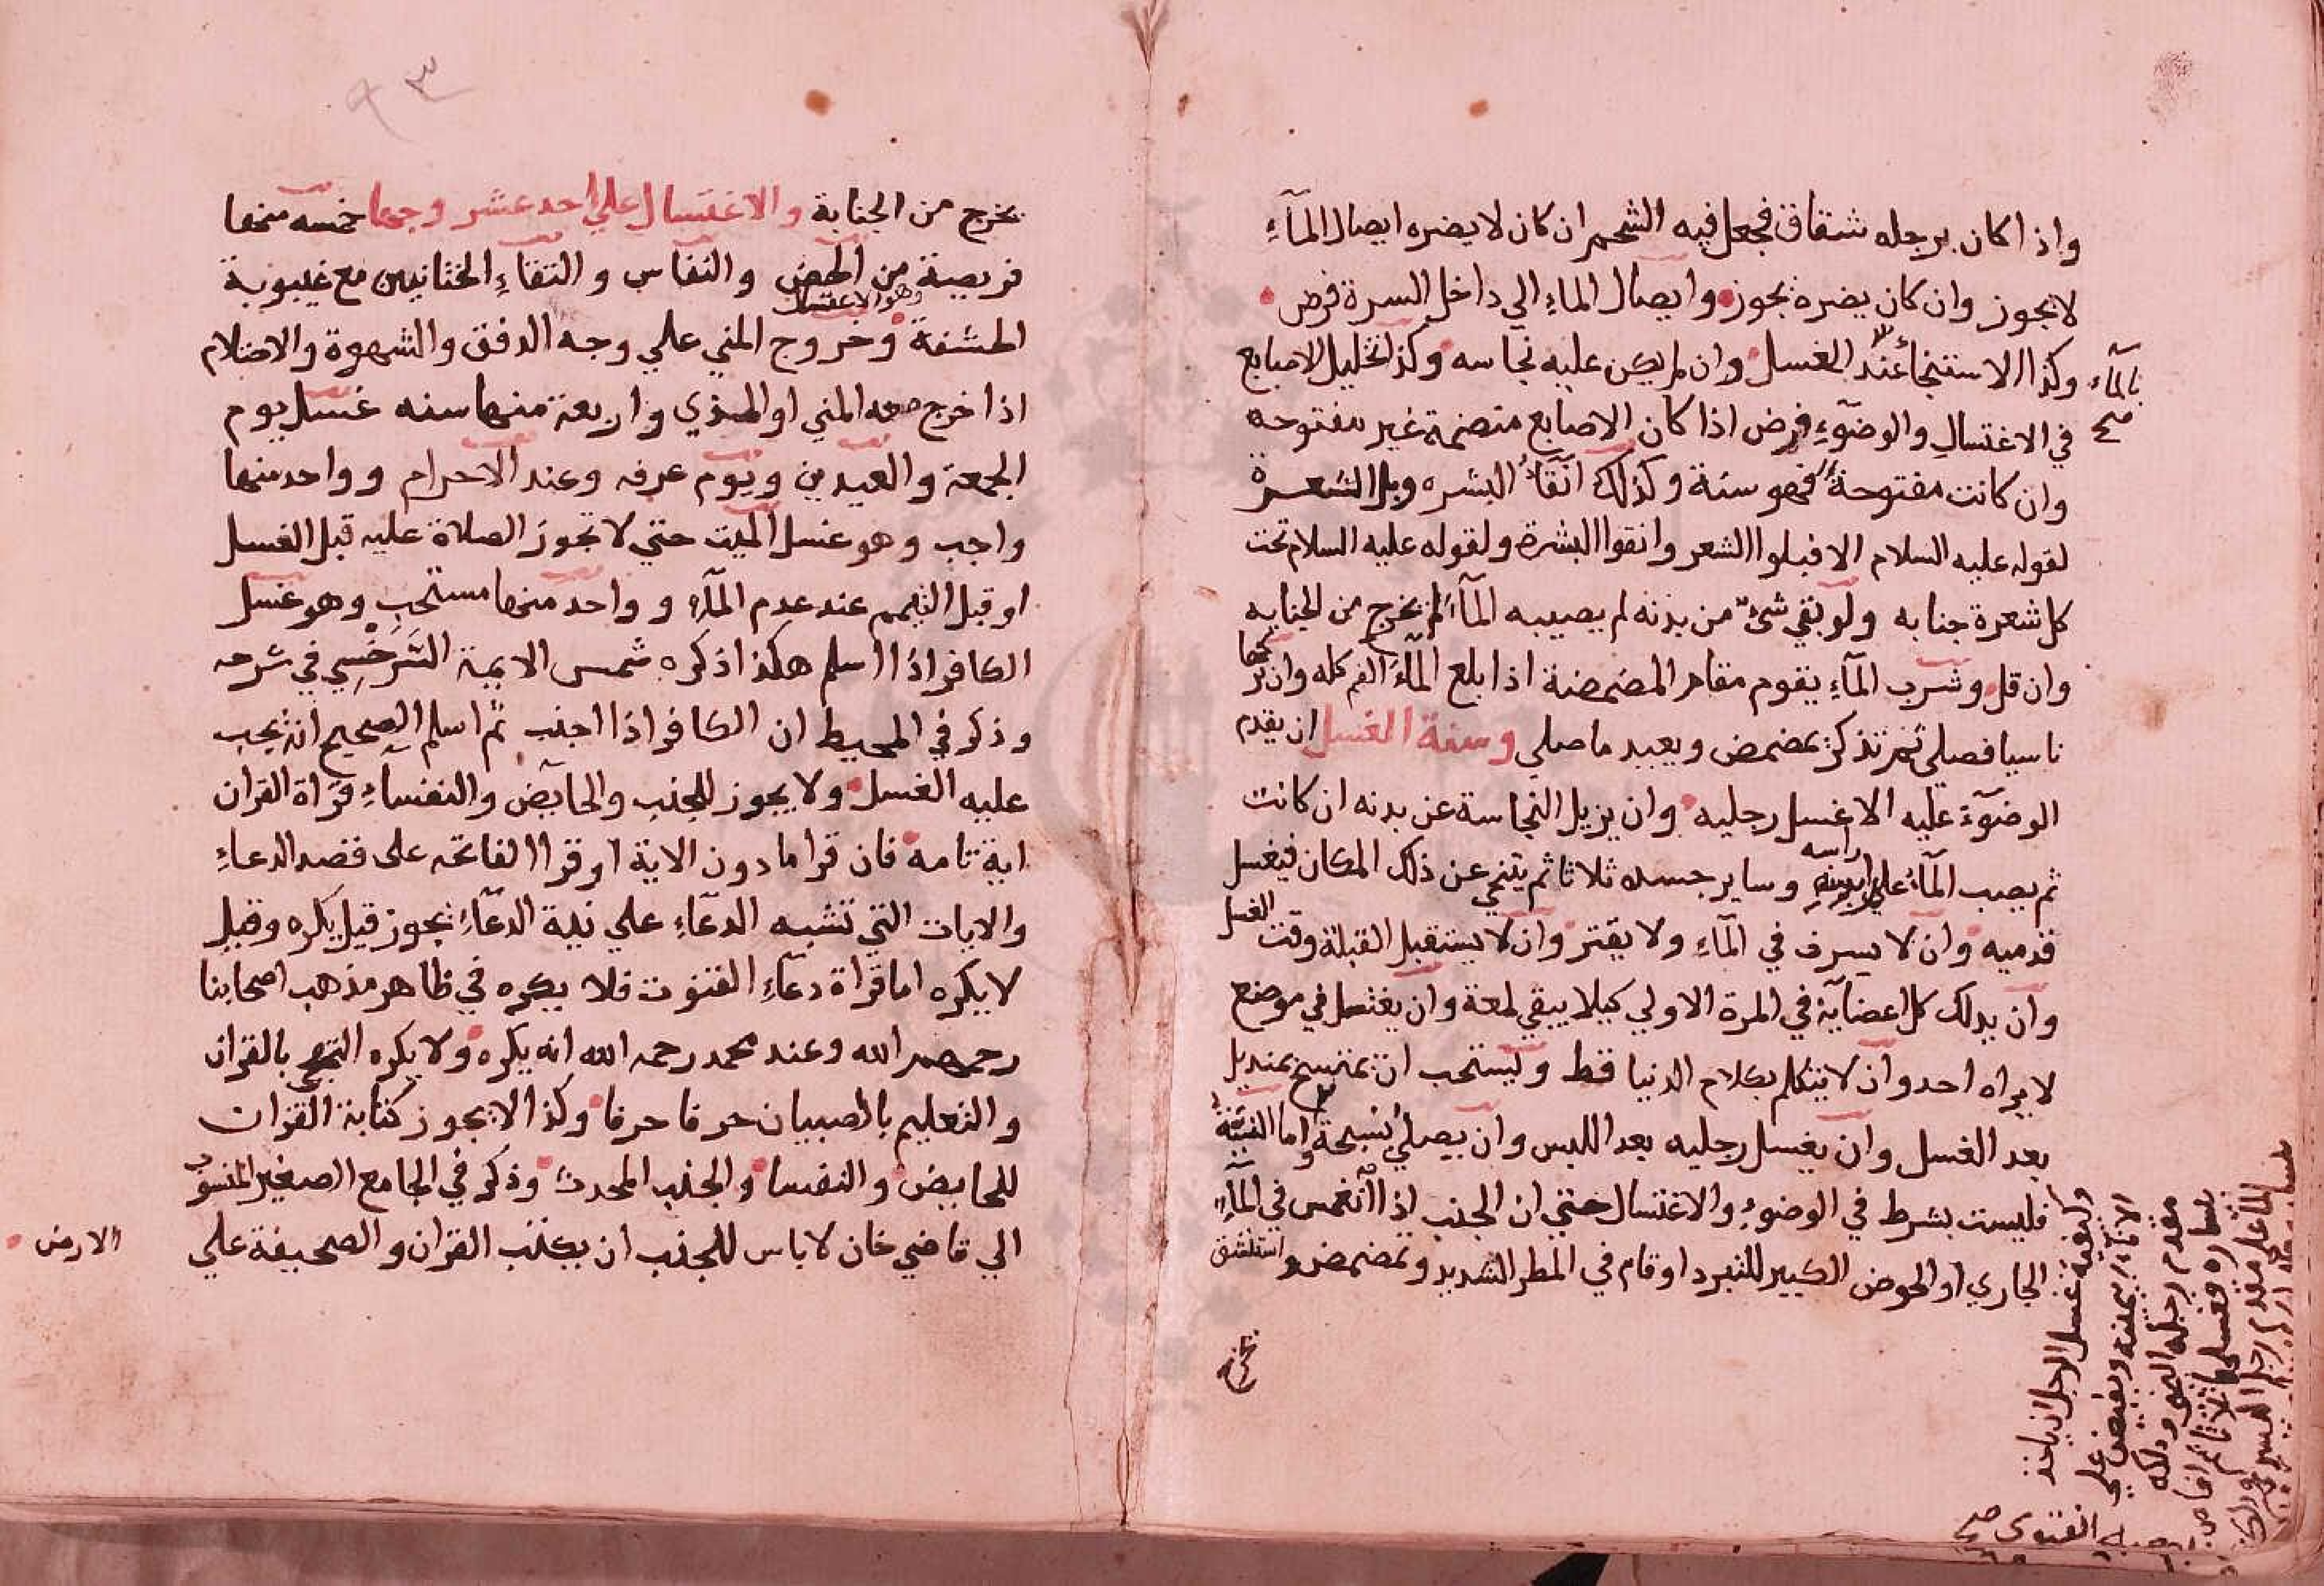 واذا كان برجله شقاق فجعل فيه الشحم ان كان لا يضره ايصال المآءِ
لا يجوز وان كان يضره يجوز وايصال الماءِ الي داخل السرة فرض
وكذا الاستنجأ عند الغسل وان لم يكن عليه نجاسه وكذا تخليل الاصابع
بالمآء صح
في الاغتسال والوضوءِ فرض اذا كان الاصابع منضمة غير مفتوحه
وان كانت مفتوحة فهو سنة وكذلك انقاء البشره وبل الشعرة
لقوله عليه السلام الا فبلوا الشعر وانقوا البشرة ولقوله عليه السلام تحت
كل شعرة جنابه ولو بقي شئ من بدنه لم يصيبه المآء لم يخرج من الجنابه
وان قل وشرب المآءِ يقوم مقام المضمضة اذا بلع المآء الفم كله وان تركها
ناسيا فصلي ثم تذكر تمضمض ويعيد ما صلي وسنة الغسل ان يقدم
الوضوء عليه الا غسل رجليه وان يزيل النجاسة عن بدنه ان كانت
ثم يصب المآء علي راسه وساير جسده ثلاثا ثم يتنحي عن ذلك المكان فيغسل
قدميه وان لا يسرف في المآءِ ولا يقتر وان لا يستقبل القبلة وقت الغسل
وان يدلك كل اعضايه في المرة الاولي كيلا يبقي لمعة وان يغتسل في موضع
لا يراه احد وان لا يتكلم بكلام الدنيا قط ويستحب ان يتمسح بمنديل
بعد الغسل وان يغسل رجليه بعد اللبس وان يصلي سبحة واما النية
فليست بشرط في الوضوءِ والاغتسال حتي ان الجنب اذا انغمس في المآءِ
الجاري او الحوض الكبير للتبرد او قام في المطر الشديد وتمضمض واستنشق
يخرج
غسل الرجل ان ياخذ
الانآء بيمينه ويفيض علي
مقدم رجله اليمني ودلكه
بيساره فغسلها ثلاثا ثم افاض
المآء علي مقدم رجله اليسري
الفتوي صح
٩٣
يخرج من الجنابة والاغتسال علي احد عشر وجها خمسه منها
فريضة من الحيض والنفاس والتقاءِ الختانين مع غيبوبة
وهو الاغتسال
الحشفة وخروج المني علي وجه الدفق والشهوة والاحتلام
اذا خرج معه المني او المذي واربعة منها سنه غسل يوم
الجمعة والعيدين ويوم عرفه وعند الاحرام وواحد منها
واجب وهو غسل الميت حتي لا تجوز الصلاة عليه قبل الغسل
او قبل التيمم عند عدم المآءِ وواحد منها مستحب وهو غسل
الكافر اذا اسلم هكذا ذكره شمس الايمة السَرَخْسِي في شرحه
وذكر في المحيط ان الكافر اذا اجنب ثم اسلم الصحيح انه يجب
عليه الغسل ولا يجوز للجنب والحايض والنفسآءِ قرآة القران
اية تامة فان قرا ما دون الاية او قرا الفاتحه على قصد الدعاءِ
والايات التي تشبه الدعآءِ علي نية الدعآءِ يجوز قيل يكره وقيل
لا يكره اما قرآة دعآءِ القنوت فلا يكره في ظاهر مذهب اصحابنا
رحمهم الله وعند محمد رحمه الله انه يكره ولا يكره التهجي بالقران
والتعليم بالصبيان حرفا حرفا وكذا لا يجوز كتابة القران
للحايض والنفسا والجنب المحدث وذكر في الجامع الصغير المنسوب
الي قاضي خان لا باس للجنب ان يكتب القران والصحيفة علي
الارض